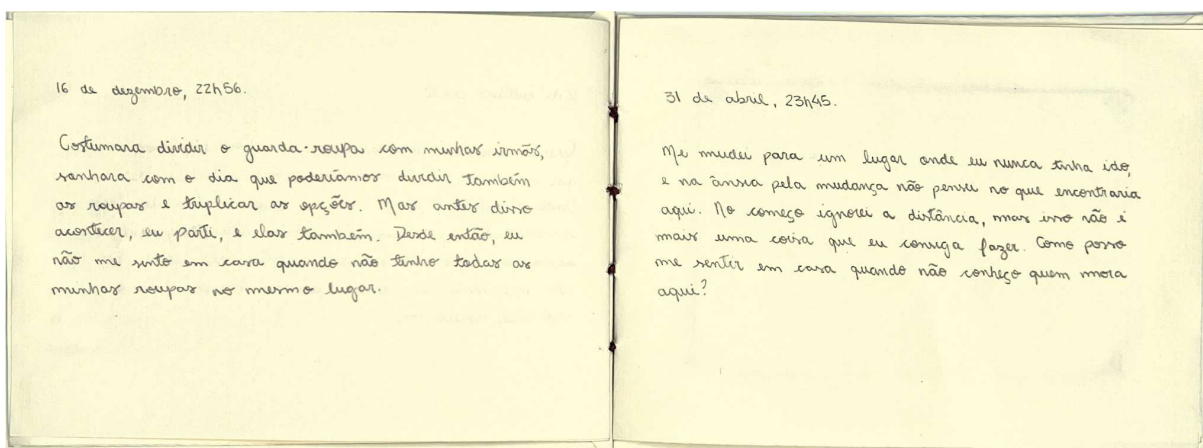 16 de dezembro, 22h56.
Costumava dividir o guarda-roupa com minhas irmãs,
sonhava com o dia que poderíamos dividir também
as roupas e triplicar as opções. Mas antes disso
acontecer, eu parti, e elas também. Desde então, eu
não me sinto em casa quando não tenho todas as
minhas roupas no mesmo lugar.
31 de abril, 23h45.
Me mudei para um lugar onde eu nunca tinha ido,
e na ânsia pela mudança não pensei no que encontraria
aqui. No começo ignorei a distância, mas isso não é
mais uma coisa que eu consiga fazer. Como posso
me sentir em casa quando não conheço quem mora
aqui?